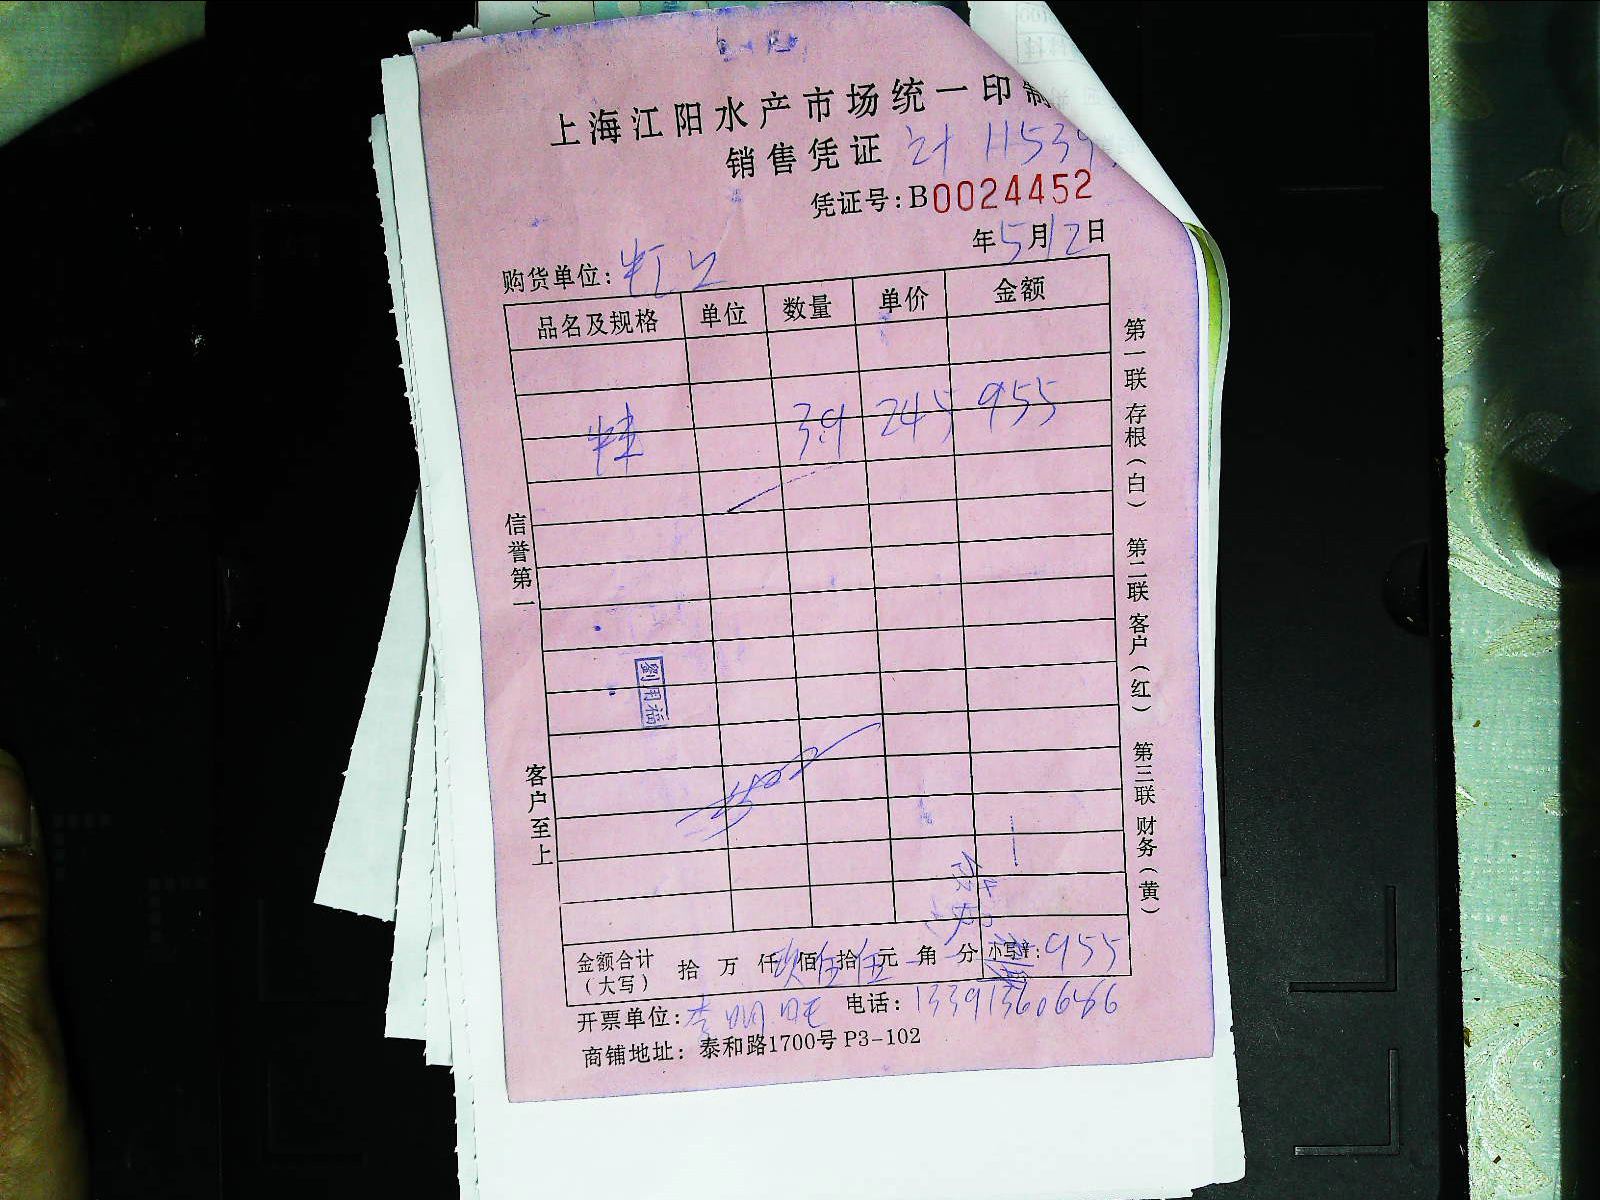 上海江阳水产市场统一印制
销售凭证
凭证号:B0024452
年5月12日
购货单位:
品名及规格 单位 数量 单价 金额
39 245 955
信誉第一
客户至上
劉用福
第一联 存根(白) 第二联 客户(红) 第三联 财务(黄)
金额合计(大写) 拾 万 仟 玖佰伍拾伍元 角 分 小写¥:955
开票单位:李明旺 电话:13391360646
商铺地址:泰和路1700号 P3-102